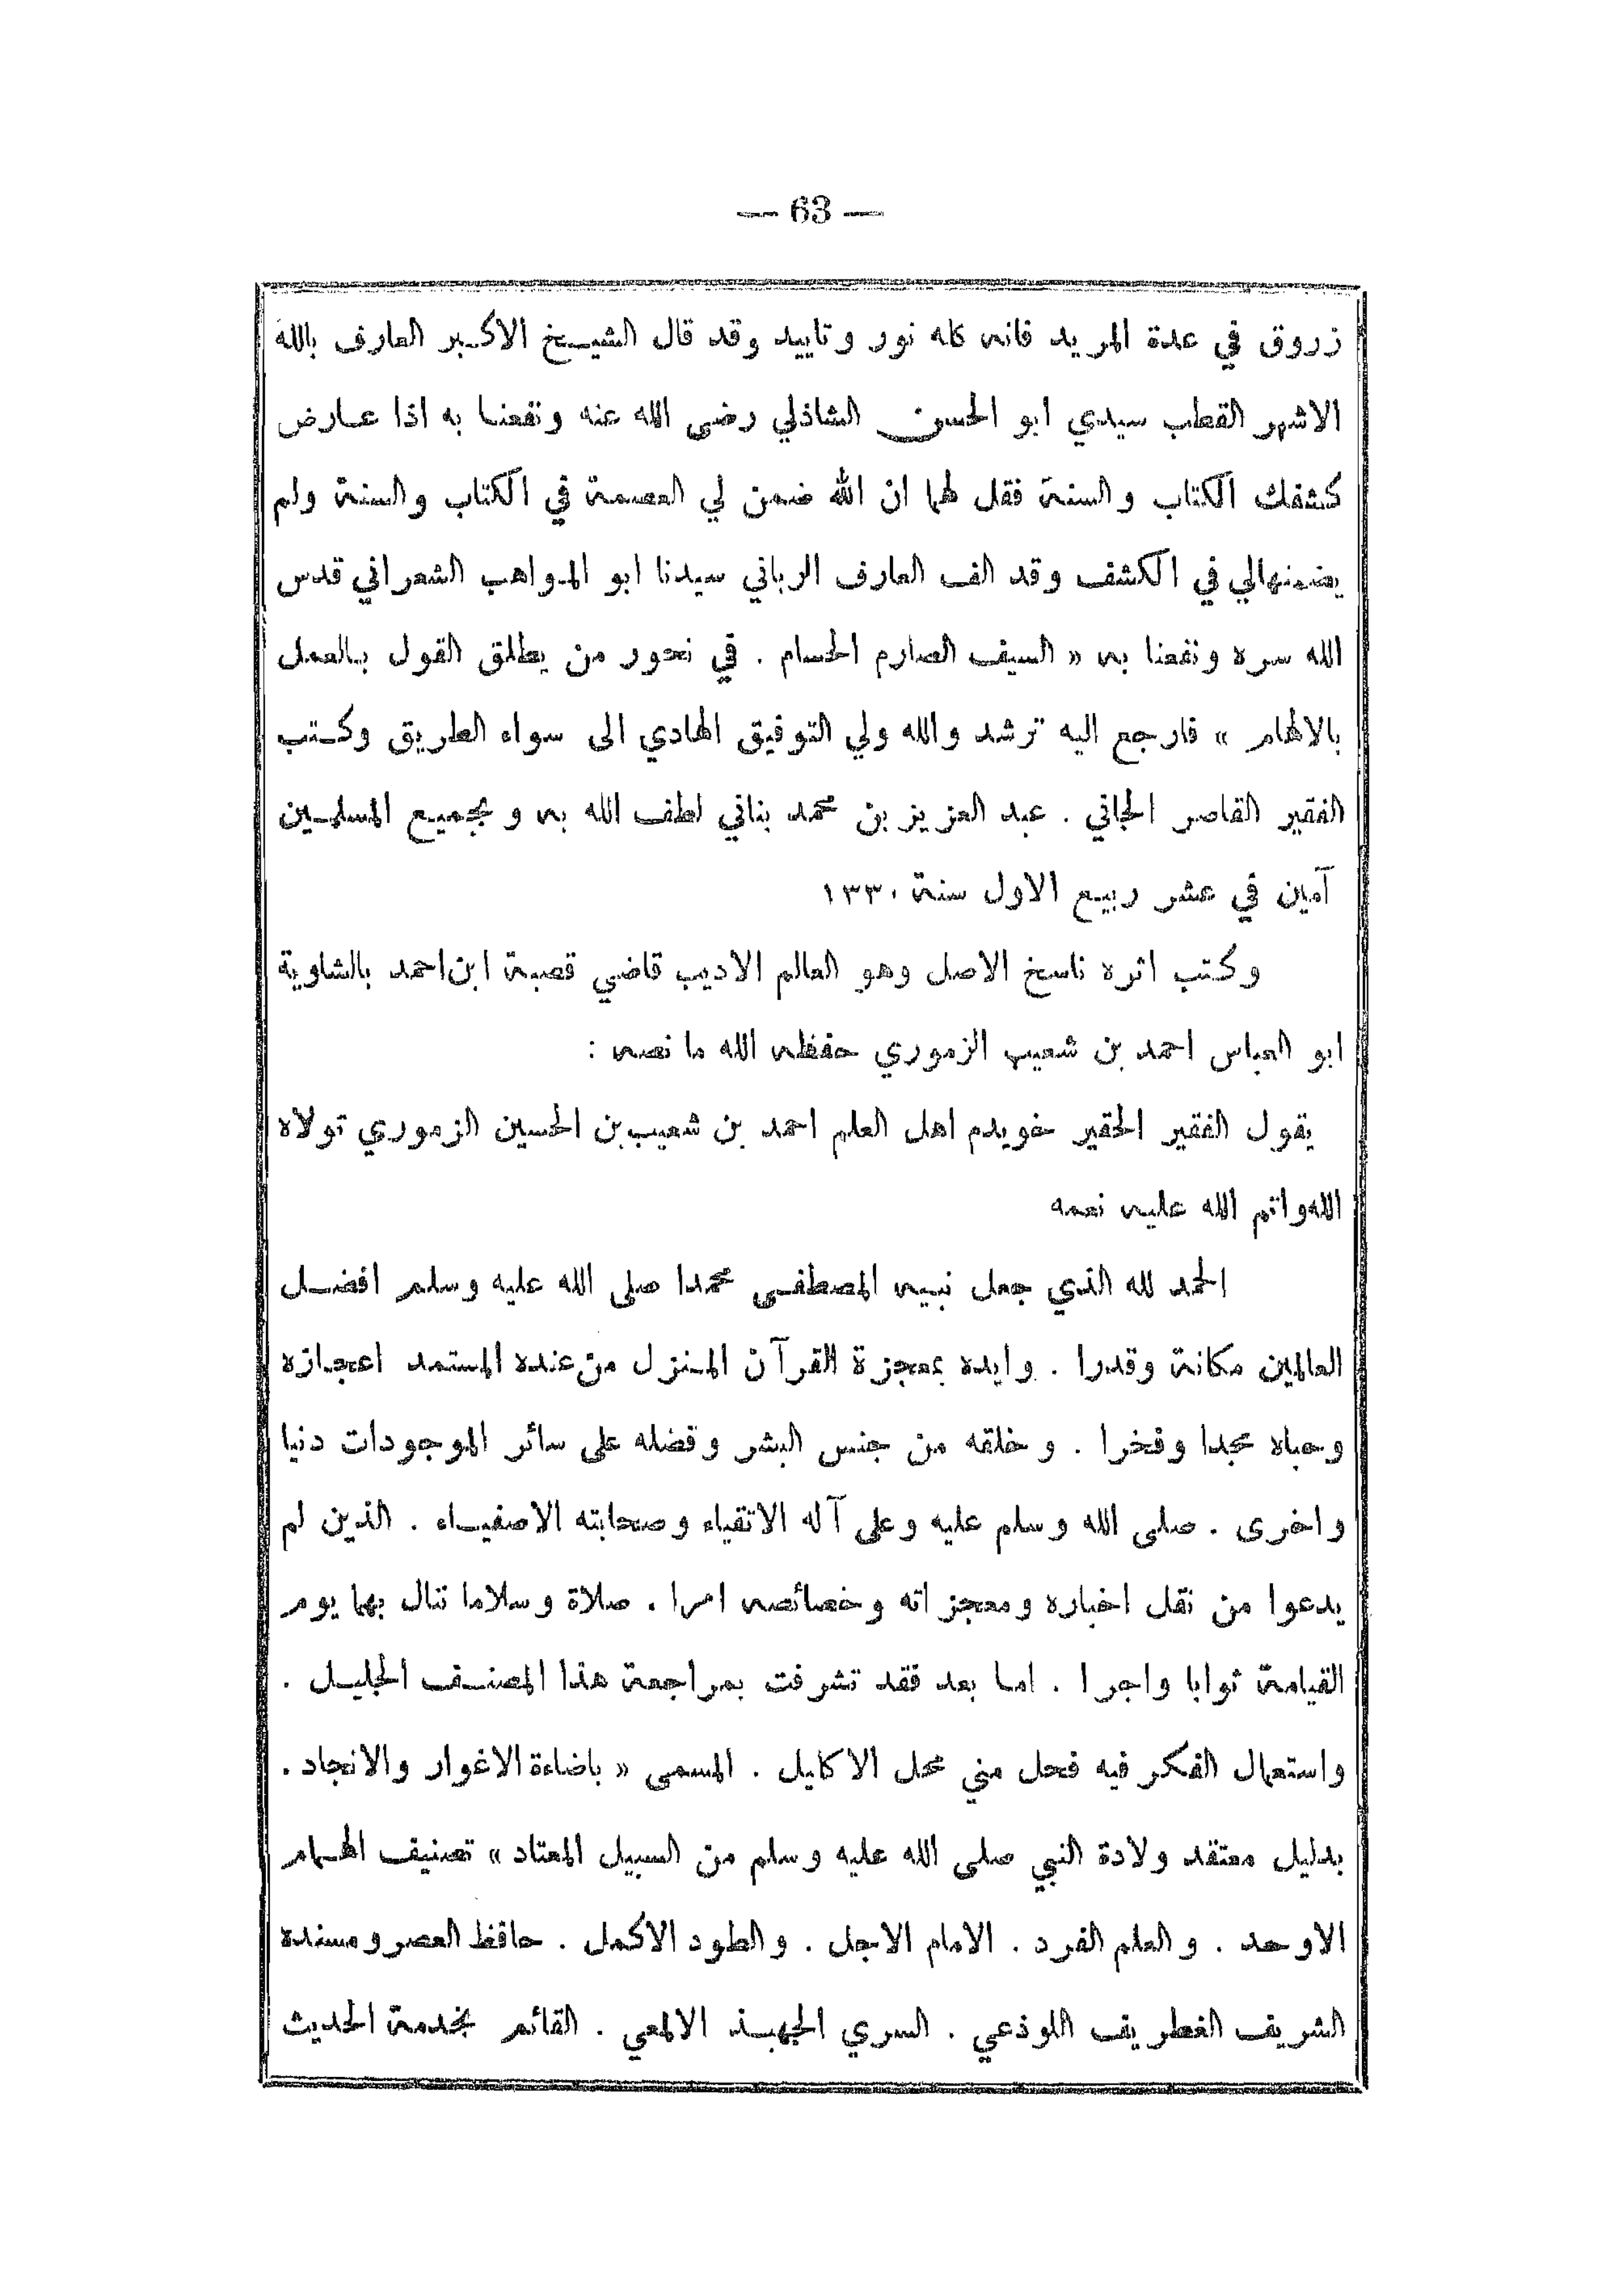 — 63 —
زروق في عدة المريد فانه كله نور وتاييد وقد قال الشيخ الاكبر العارف بالله
الاشهر القطب سيدي ابو الحسن الشاذلي رضي الله عنه ونفعنا به اذا عارض
كشفك الكتاب والسنة فقل لها ان الله ضمن لي العصمة في الكتاب والسنة ولم
يضمنهالي في الكشف وقد الف العارف الرباني سيدنا ابو المواهب الشعراني قدس
الله سره ونفعنا به « السيف الصارم الحسام . في نحور من يطلق القول بالعمل
بالالهام » فارجع اليه ترشد والله ولي التوفيق الهادي الى سواء الطريق وكتب
الفقير القاصر الجاني . عبد العزيز بن محمد بناني لطف الله به وبجميع المسلمين
آمين في عشر ربيع الاول سنة ١٣٣٠
وكتب اثره ناسخ الاصل وهو العالم الاديب قاضي قصبة ابن احمد بالشاوية
ابو العباس احمد بن شعيب الزموري حفظه الله ما نصه :
يقول الفقير الحقير خويدم اهل العلم احمد بن شعيب بن الحسين الزموري تولاه
الله واتم الله عليه نعمه
الحمد لله الذي جعل نبيه المصطفى محمدا صلى الله عليه وسلم افضل
العالمين مكانة وقدرا . وايده بمعجزة القرآن المنزل من عنده المستمد اعجازه
وحباه مجدا وفخرا . وخلقه من جنس البشر وفضله على سائر الموجودات دنيا
واخرى . صلى الله وسلم عليه وعلى آله الاتقياء وصحابته الاصفياء . الذين لم
يدعوا من نقل اخباره ومعجزاته وخصائصه امرا . صلاة وسلاما تنال بهما يوم
القيامة ثوابا واجرا . اما بعد فقد تشرفت بمراجعة هذا المصنف الجليل .
واستعمال الفكر فيه فحل مني محل الاكليل . المسمى « باضاءة الاغوار والانجاد .
بدليل معتقد ولادة النبي صلى الله عليه وسلم من السبيل المعتاد » تصنيف الهمام
الاوحد . والعلم الفرد . الامام الاجل . والطود الاكمل . حافظ العصر ومسنده
الشريف الغطريف اللوذعي . السري الجهبذ الالمعي . القائم بخدمة الحديث